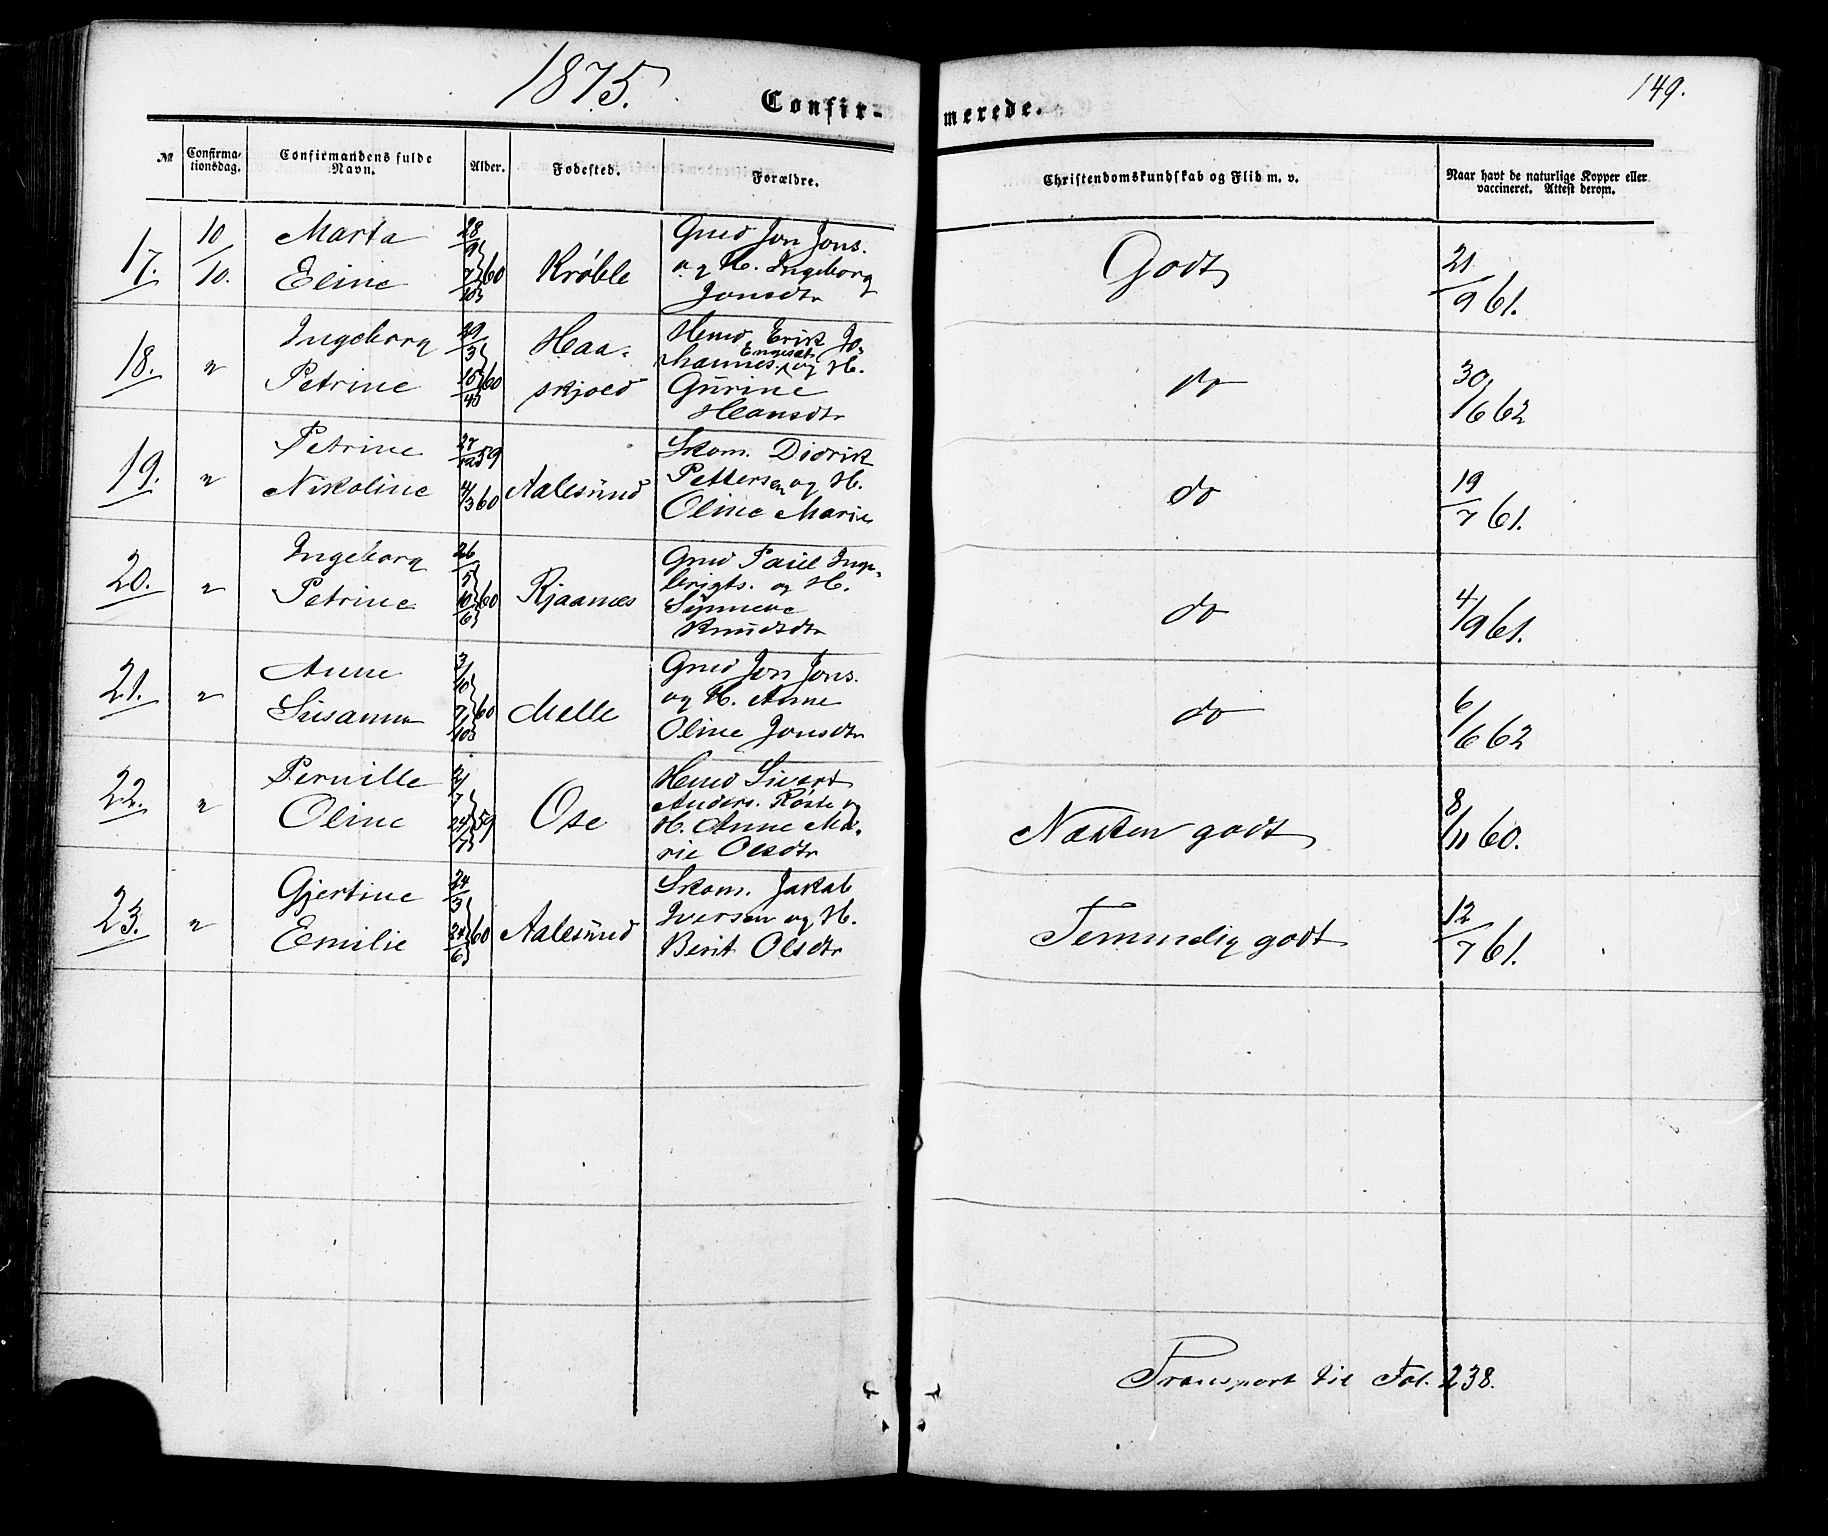 1875.
149.
Confir- merede.
№
Confirma-
tionsdag.
Confirmandens fulde
Navn.
Alder.
Fødested.
Forældre.
Christendomskundskab og Flid m. v.
Naar havt de naturlige Kopper eller
vaccineret. Attest derom.
17. 10/10. Marta Eline 28/9 7/10 60 Krøble
Gmd Jon Jons.
og H. Ingeborg
Jonsdtr
Godt 21/9 61.
18. " Ingeborg Petrine 29/3 60 Haa-
skjold
Hmd. Erik Jo-
hannes. Engeset og H.
Gurine
Hansdtr
do 30/6 62
19. " Petrine Nikoline 27/12 59 4/3 60 Aalesund
Skom. Didrik
Pettersen og H.
Oline Marie
do 19/7 61.
20. " Ingeborg Petrine 26/5 10/6 60 Kjaanes
Gmd Paul Inge-
brigts. og H.
Synneve
Knudsdtr
do 4/9 61.
21. " Anne Susanna 3/10 7/10 60 Melle
Gmd Jon Jons.
og H. Anne
Oline Jonsdtr
do 6/6 62
22. " Pernille Oline 2/7 24/7 59 Ose
Hmd Sivert
Anders. Røste og
H. Anne Ma-
rie Olsdtr
Næsten godt 8/11 60.
23. " Gjertine Emilie 24/3 24/6 60 Aalesund
Skom. Jakob
Iversen og H.
Berit Olsdtr
Temmelig godt 12/7 61.
Transport til Fol. 238.